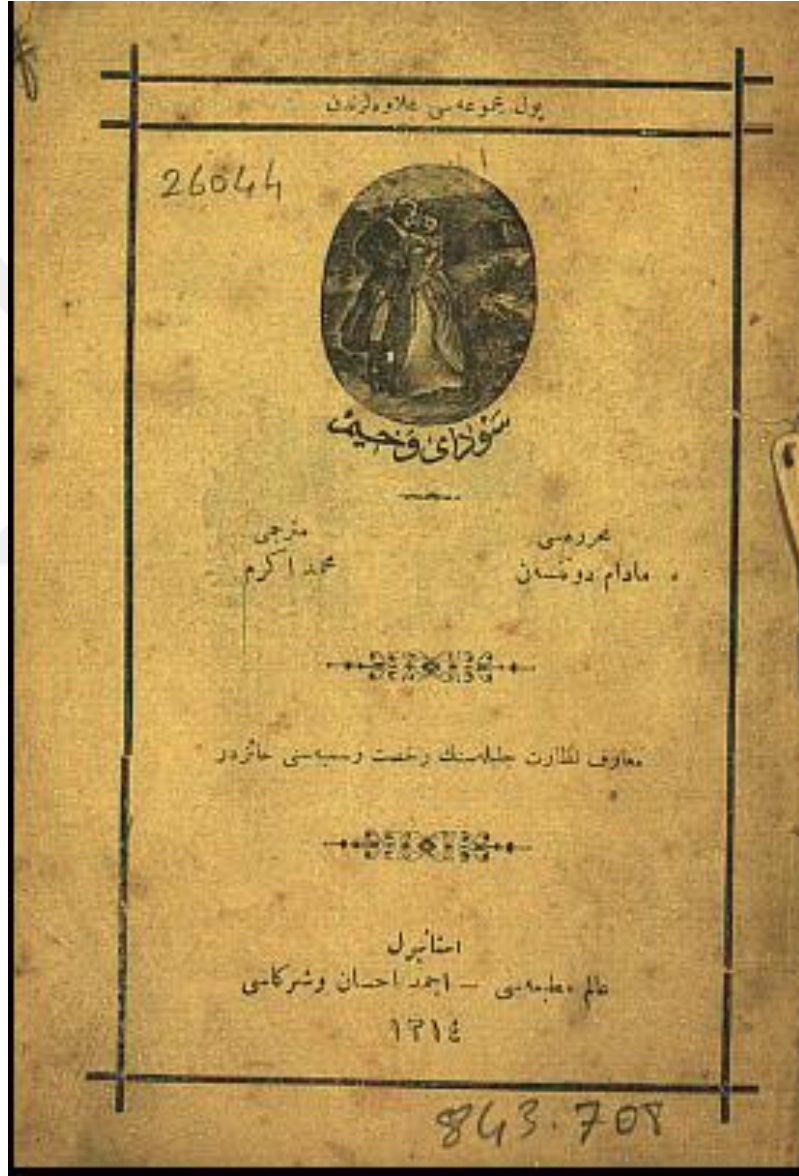 پول مجموعه‌سی علاوه‌لرندن
26044
سَوْدَاىِ وَخيمْ
محرره‌سی
مترجمی
مادام دو
محمد اكرم
معارف نظارت جلیله‌سنك رخصت رسمیه‌سی حائزدر
استانبول
عالم مطبعه‌سی — احمد احسان وشركاسی
١٣١٤
843.708